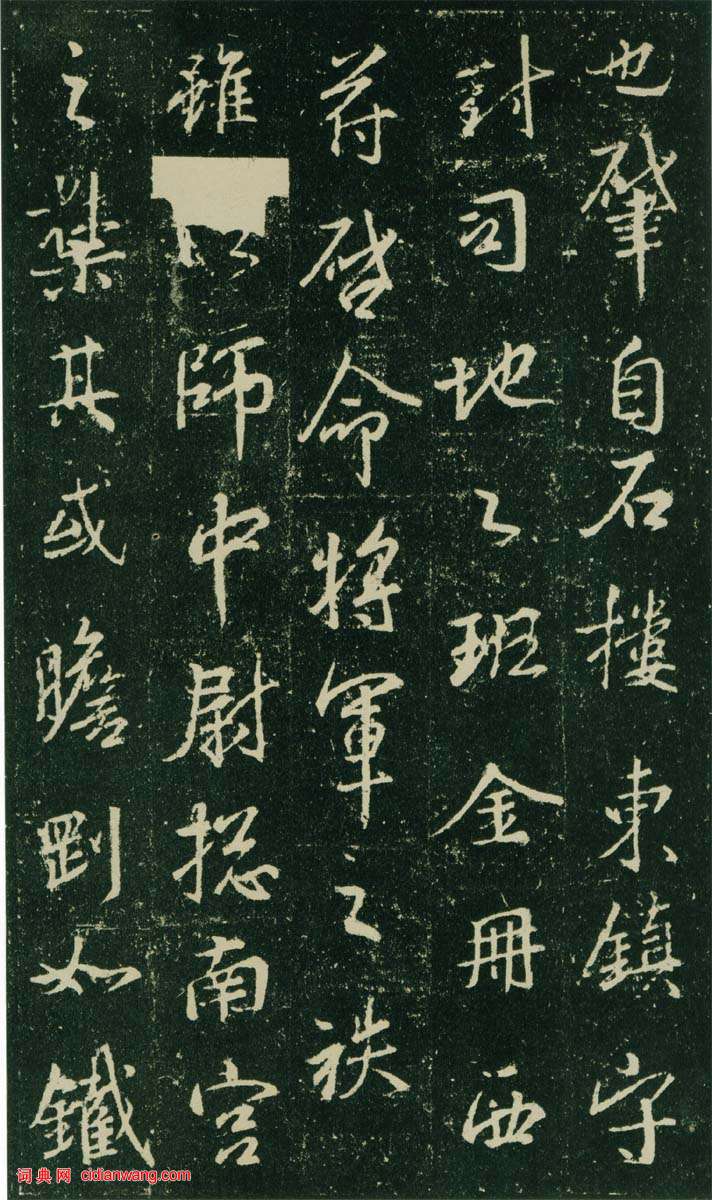 也肇自石樓東鎮守
封司地之班金冊西
苻啓命將軍之袟
雖以師中尉揔南宮
之禁其或瞻𠜍如鐵
词典网 cidianwang.com